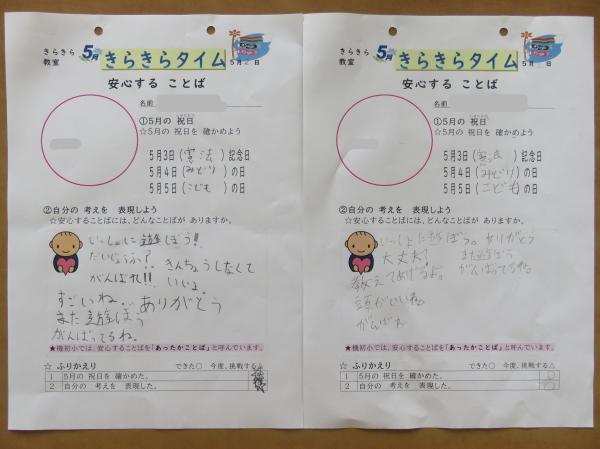 きらきら
教室
5月
きらきらタイム
5月 日
安心する ことば
名前
①5月の 祝日
☆5月の 祝日を 確かめよう
5月3日(憲法)記念日
5月4日(みどり)の日
5月5日(こども)の日
②自分の 考えを 表現しよう
☆安心することばには、どんなことばが ありますか。
いっしょに遊ぼう!!
だいじょうぶ?
きんちょうしなくて
がんばれ!! いいよ。
すごいね。 ありがとう
また遊ぼう
がんばってるね。
★機初小では、安心することばを「あったかことば」と呼んでいます。
☆ ふりかえり できた○ 今度、挑戦する△
1 5月の 祝日を 確かめた。
2 自分の 考えを 表現した。
きらきら
教室
5月
きらきらタイム
5月 日
安心する ことば
名前
①5月の 祝日
☆5月の 祝日を 確かめよう
5月3日(憲法)記念日
5月4日(みどり)の日
5月5日(こども)の日
②自分の 考えを 表現しよう
☆安心することばには、どんなことばが ありますか。
いっしょに遊ぼう。ありがとう
大丈夫? また遊ぼう
教えてあげるよ。 がんばってるね
頭がいいね
がんばれ
★機初小では、安心することばを「あったかことば」と呼んでいます。
☆ ふりかえり できた○ 今度、挑戦する△
1 5月の 祝日を 確かめた。
2 自分の 考えを 表現した。